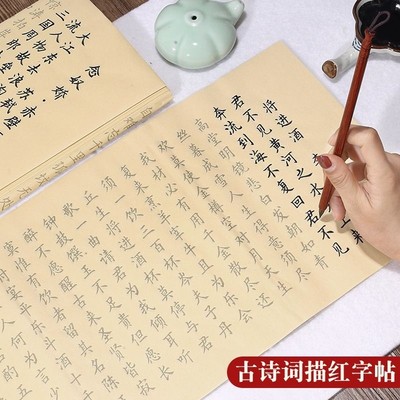 将进酒
君不见黄河之水天上来
奔流到海不复回君不见
高堂明镜悲白发朝如青
丝暮成雪人生得意须尽
欢莫使金樽空对月天生
我材必有用千金散尽还
复来烹羊宰牛且为乐会
须一饮三百杯岑夫子丹
丘生将进酒杯莫停与君
歌一曲请君为我倾耳听
钟鼓馔玉不足贵但愿长
醉不愿醒古来圣贤皆寂
寞惟有饮者留其名陈
念奴娇·赤壁
大江东去
流人物故垒
三国周
古诗词描红字帖